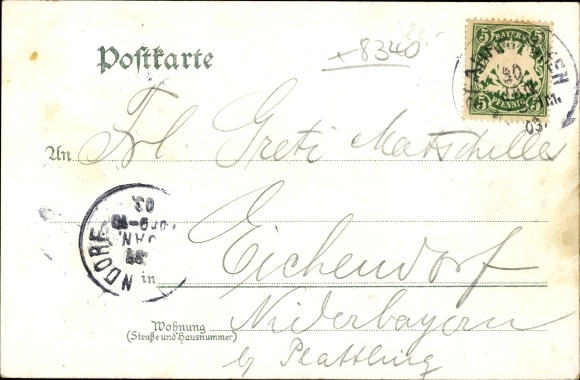 Postkarte
+8340
5 BAYERN 5
5 PFENNIG 5
30
03.
An Frl. Greti Matscheller
NDORF
JAN.
03.
in Eichendorf
Wohnung
(Straße und Hausnummer)
Niderbayern
by Plattling